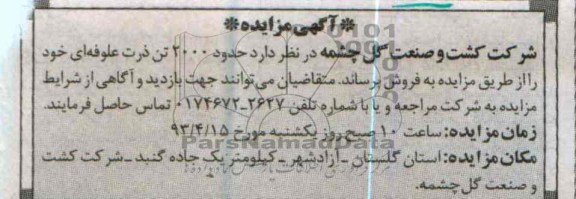 *آگهی مزایده*
شرکت کشت و صنعت گل چشمه در نظر دارد حدود ۲۰۰۰ تن ذرت علوفه‌ای خود
را از طریق مزایده به فروش برساند. متقاضیان می‌توانند جهت بازدید و آگاهی از شرایط
مزایده به شرکت مراجعه و یا با شماره تلفن ۲۶۲۷-۰۱۷۴۶۷۲ تماس حاصل فرمایند.
زمان مزایده: ساعت ۱۰ صبح روز یکشنبه مورخ ۹۳/۴/۱۵
ParsNamadData
مکان مزایده: استان گلستان ـ آزادشهر ـ کیلومتر یک جاده گنبد ـ شرکت کشت
و صنعت گل چشمه.